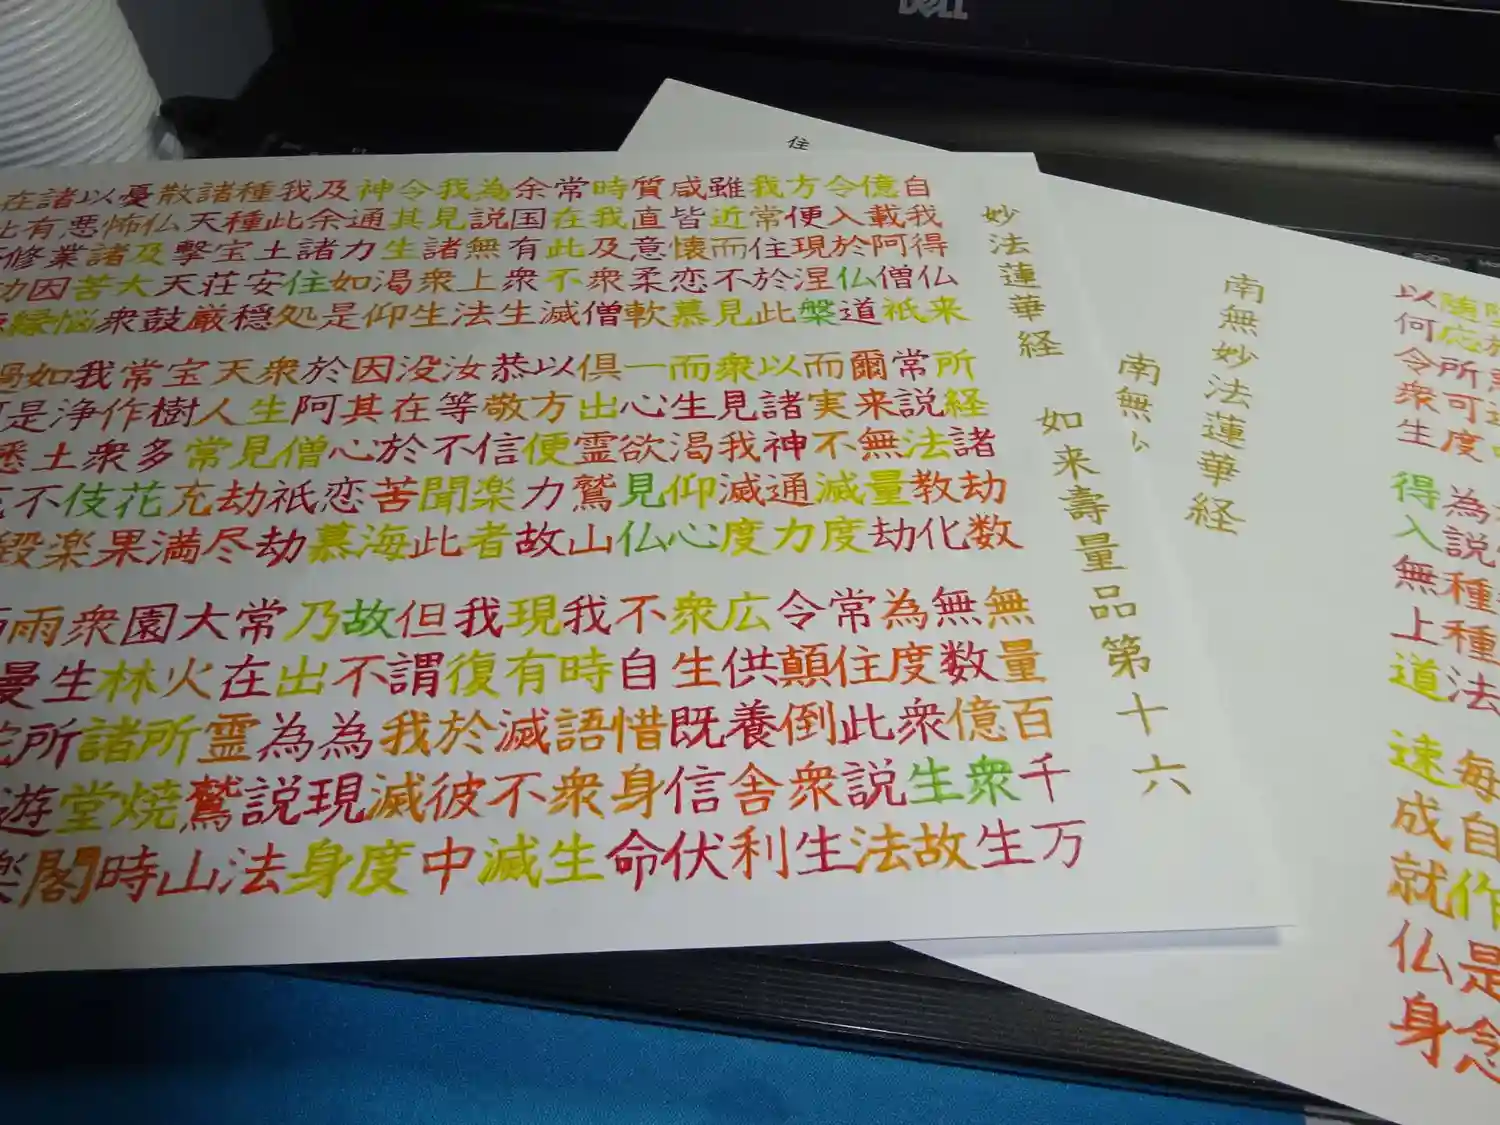 住
堕
随応所可度 為説種種法 毎自作是念
以何令衆生 得入無上道 速成就仏身
南無妙法蓮華経
南無
妙法蓮華経 如来壽量品第十六
自我得仏来 所経諸劫数 無量百千万
億載阿僧祇 常説法教化 無数億衆生
令入於仏道 爾来無量劫 為度衆生故
方便現涅槃 而実不滅度 常住此説法
我常住於此 以諸神通力 令顛倒衆生
雖近而不見 衆見我滅度 広供養舎利
咸皆懐恋慕 而生渇仰心 衆生既信伏
質直意柔軟 一心欲見仏 不自惜身命
時我及衆僧 倶出霊鷲山 我時語衆生
常在此不滅 以方便力故 現有滅不滅
余国有衆生 恭敬信楽者 我復於彼中
為説無上法 汝等不聞此 但謂我滅度
我見諸衆生 没在於苦海 故不為現身
令其生渇仰 因其心恋慕 乃出為説法
神通力如是 於阿僧祇劫 常在霊鷲山
及余諸住処 衆生見劫尽 大火所焼時
我此土安穏 天人常充満 園林諸堂閣
種種宝荘厳 宝樹多花果 衆生所遊楽
諸天撃天鼓 常作衆伎楽 雨曼
散仏及大衆 我浄土不毀
憂怖諸苦悩 如是悉
以悪業因縁 過
諸有修功
在
DELL